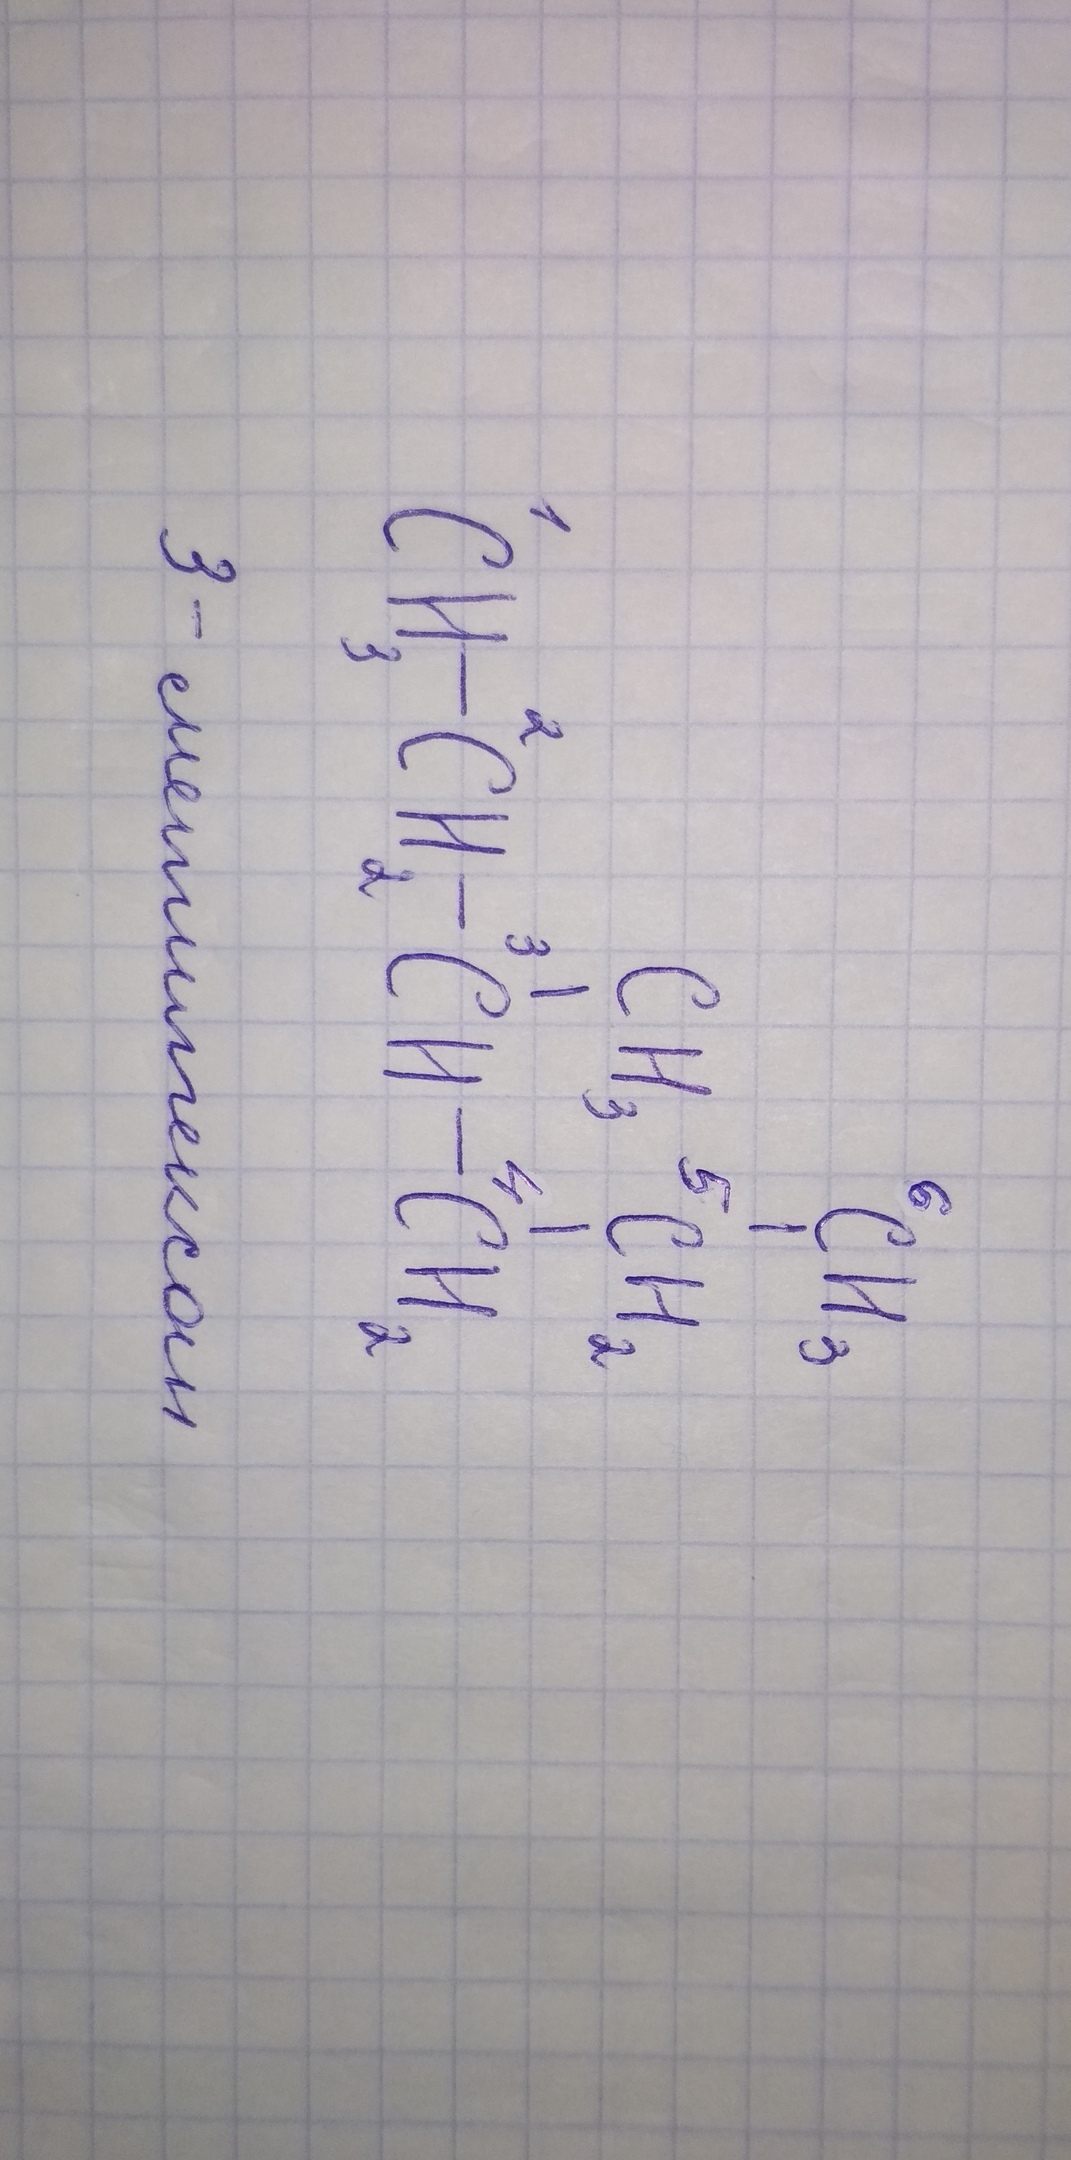 6CH3
CH3 5CH2
1CH3-2CH2-3CH-4CH2
3-метилгексан